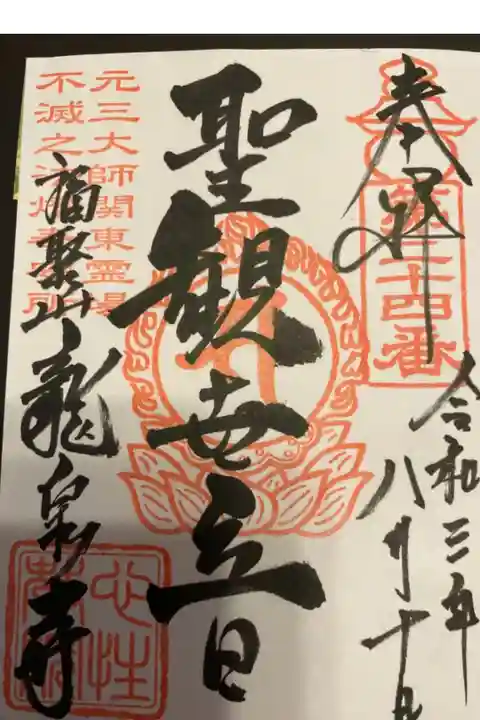 奉拝
第二十四番
令和三年
八月十日
聖観世音
元三大師関東霊場
不滅之法燈
福聚山龍泉寺
心性